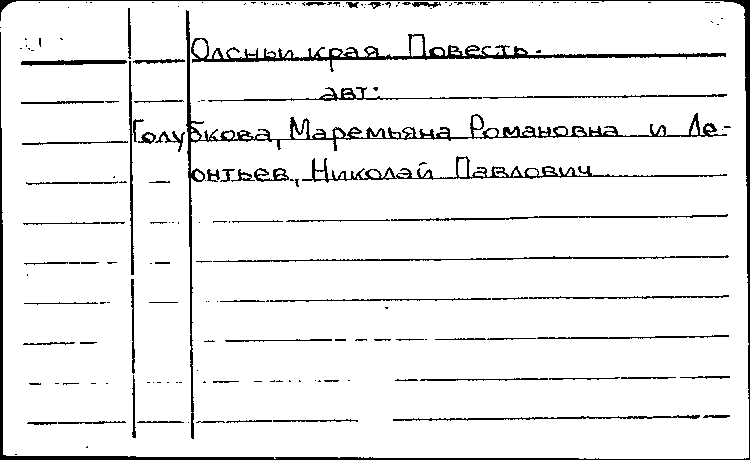 Оленьи края. Повесть.
авт:
Голубкова, Маремьяна Романовна и Ле-
онтьев, Николай Павлович